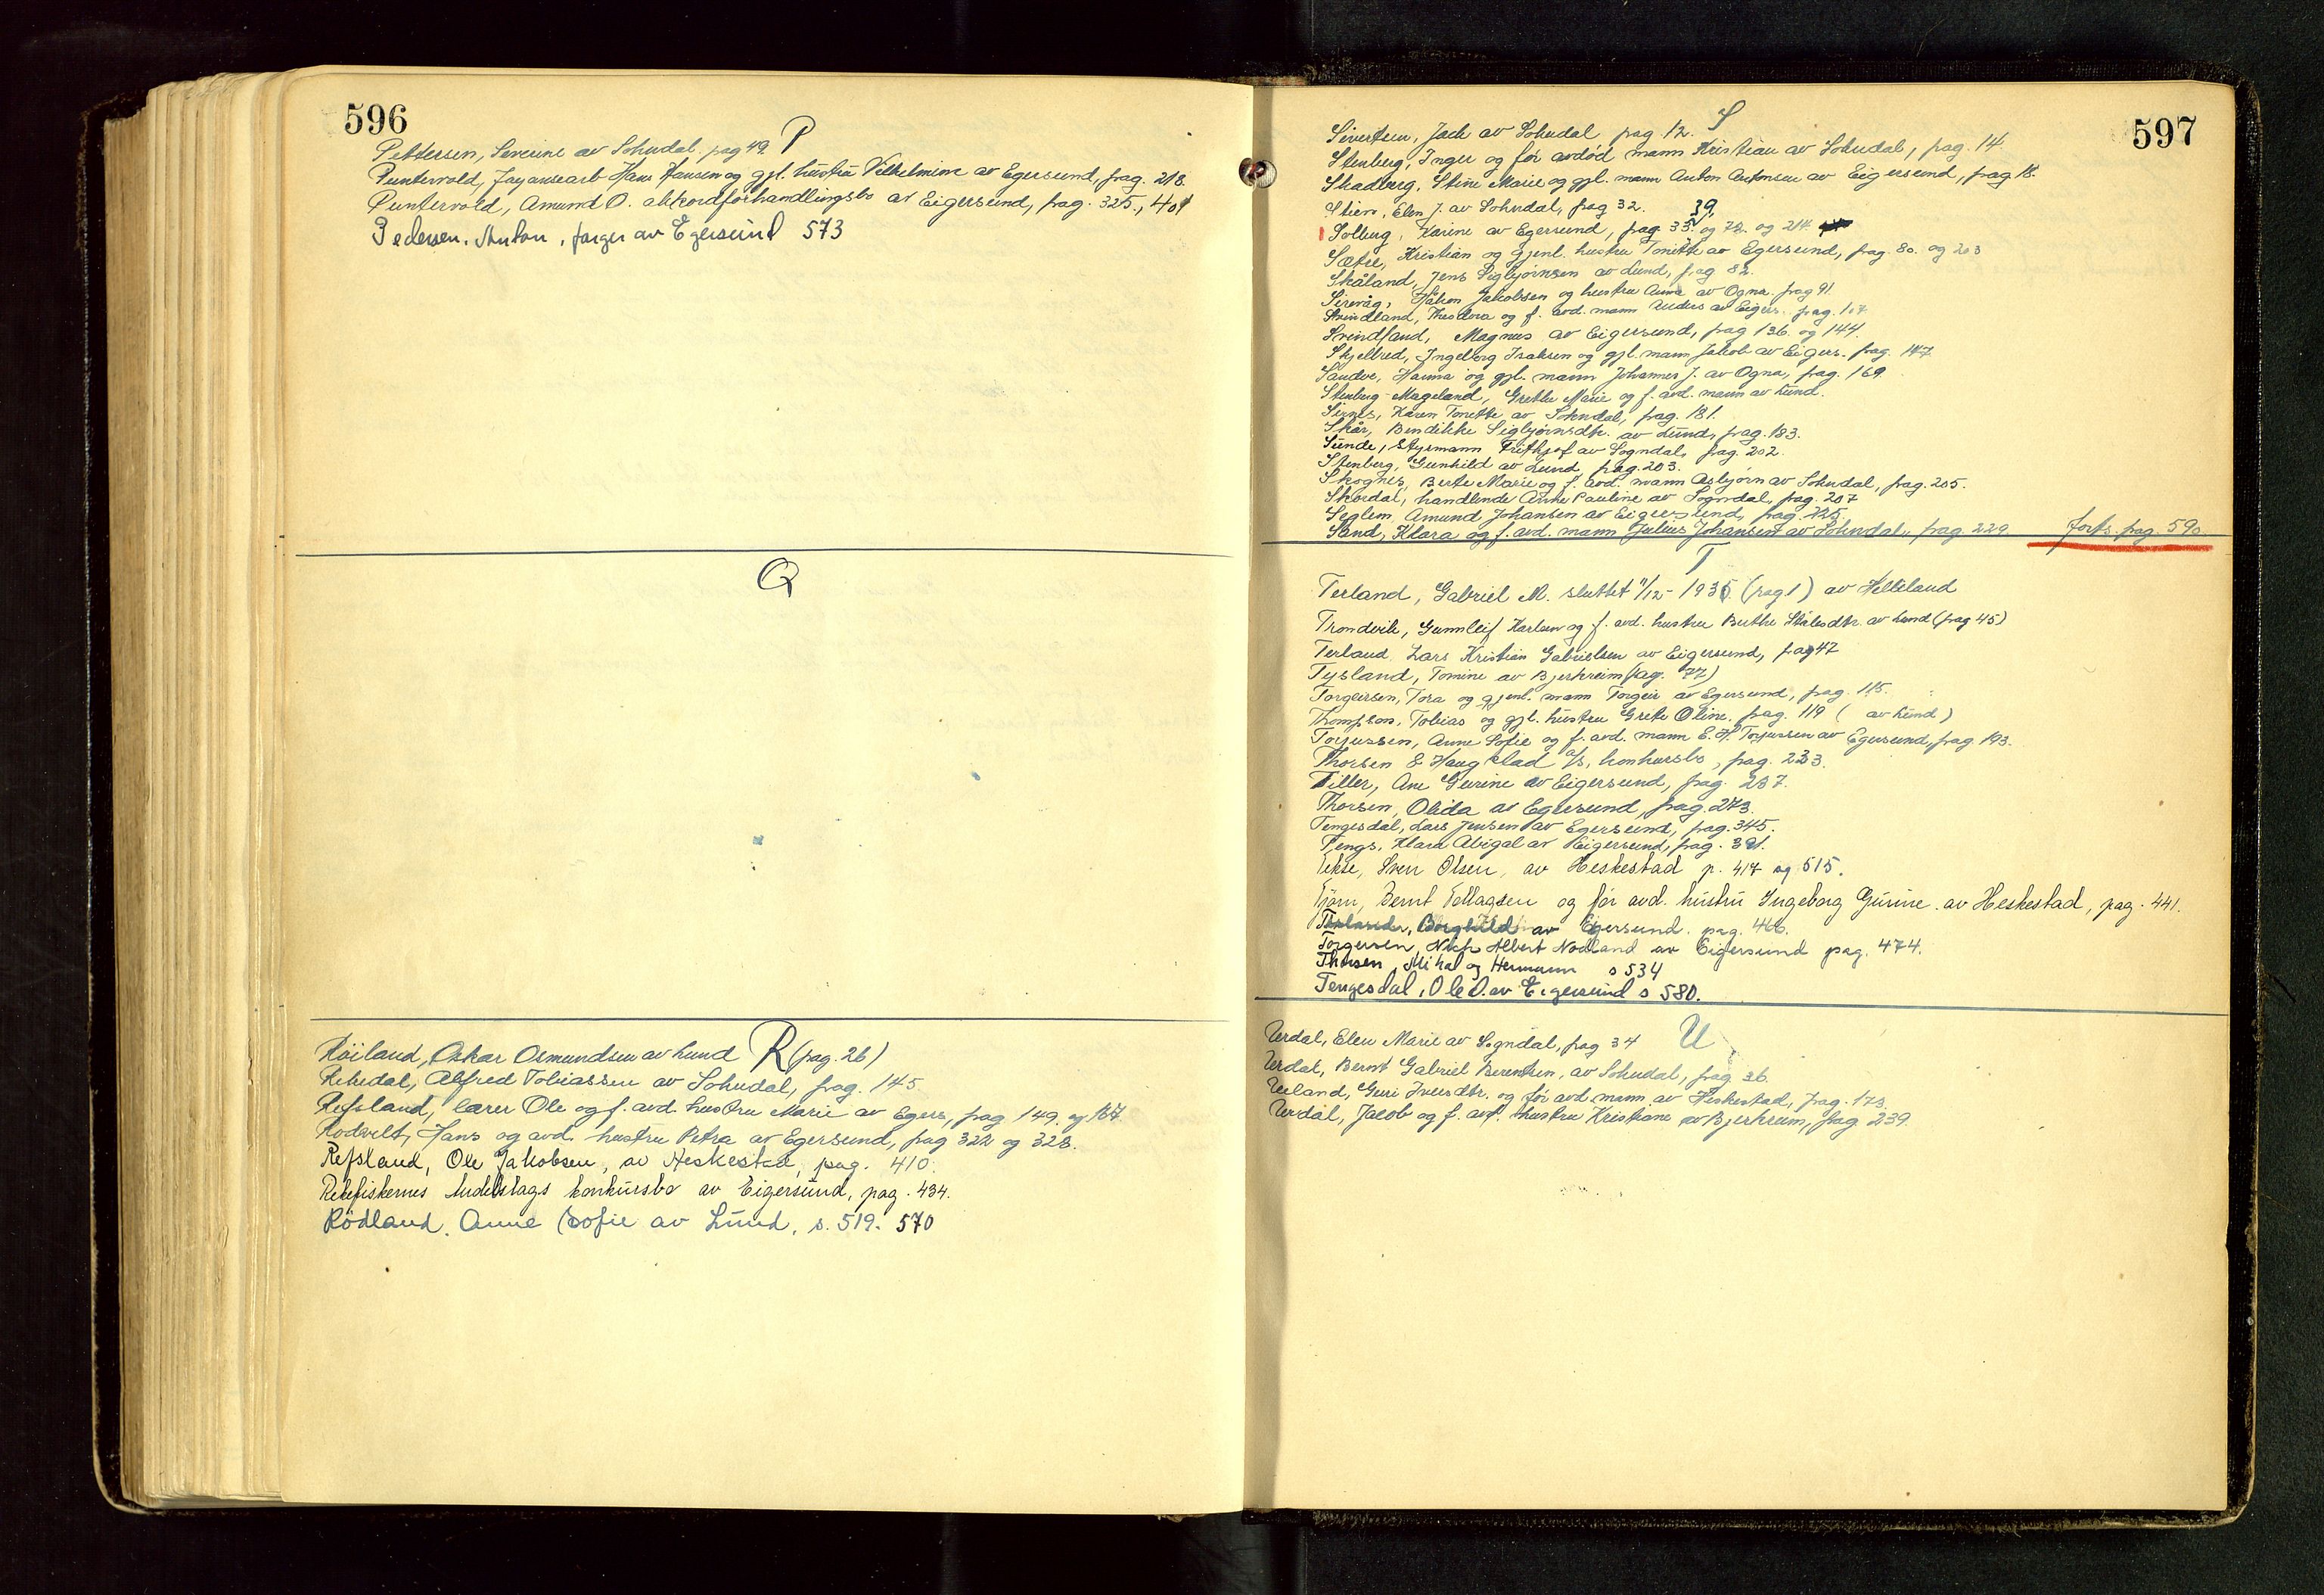 596
P
Pettersen, Severine av Sokndal pag 49
Puntervold, Fayansearb. Hans Hansen og gjl. hustru Vilhelmine av Egersund, pag. 218.
Puntervold, Amund O. akkordforhandlingsbo av Eigersund, pag. 325., 401
Pedersen, Anton, farger av Egersund 573
Q
R
Röiland, Oskar Osmundsen av Lund (pag. 26)
Rekedal, Alfred Tobiassen av Sokndal, pag. 145.
Refsland, lærer Ole og f. avd. hustru Marie av Egers, pag 149. og 167.
Rodvelt, Hans og avd. hustru Petra av Egersund, pag 322 og 328.
Refsland, Ole Jakobsen, av Heskestad, pag. 410.
Rekefiskernes Andelslags konkursbo av Eigersund, pag. 434.
Rödland, Anne Sofie av Lund, s. 519. 570
597
S
Sivertsen, Jack av Sokndal pag 12.
Stenberg, Inger og før avdød mann Kristian av Sokndal, pag. 14.
Skadberg, Stine Marie og gjl. mann Anton Antonsen av Eigersund, pag 18.
Stien, Elen J. av Sokndal, pag 32. 39,
Solberg, Karine av Egersund, pag. 35. og 72. og 214
Sætre, Kristian og gjenl. hustru Tonette av Egersund, pag. 80. og 203
Skåland, Jens Sigbjørnsen av Lund, pag 82.
Sirevåg, Håkon Jakobsen og hustru Anna av Ogna. pag 91.
Svindland, Theodora og f. avd. mann Anders av Eigers. pag. 107
Svindland, Magnus av Eigersund, pag 136. og 144.
Skjelbred, Ingeborg Isaksen og gjl. mann Jakob av Eigers. pag. 147.
Sandve, Hanna og gjl. mann Johannes J. av Ogna, pag. 169.
Stenberg Mageland, Grethe Marie og f. avd. mann av Lund.
Sirnes, Karen Tonette av Sokndal, pag. 181.
Skår, Bendikke Sigbjørnsdtr. av Lund, pag. 183.
Sunde, Styrmann Fritkjof av Sogndal, pag. 202.
Stenberg, Gunhild av Lund, pag. 203.
Skognes, Berte Marie og f. avd. mann Asbjørn av Sokndal, pag. 205.
Skordal, handlende Anne Pauline av Sogndal, pag. 207
Seglem, Amund Johansen av Eigersund, pag. 225.
Sand, Klara og f. avd. mann Julius Johansen av Sokndal, pag. 229. forts. pag. 590.
T
Terland, Gabriel M. sluttet 11/12- 1935 (pag 1) av Helleland
Trondvik, Gunnleif Karlsen og f. avd. hustru Berthe Ståledtr. av Lund (pag 45)
Terland, Lars Kristian Gabrielsen av Eigersund, pag 47
Tysland, Tomine av Bjerkreim (pag. 77)
Torgersen, Tora og gjenl. mann Torgeir av Egersund, pag. 115.
Thompson, Tobias og gjl. hustru Grete Oline, pag. 119 ( av Lund )
Torjussen, Anne Sofie og f. avd. mann E. H. Torjussen av Egersund, pag. 193.
Thorsen & Haugstad A/S, konkursbo, pag. 233.
Tiller, Ane Gurine av Eigersund, pag. 237.
Thorsen, Olida av Egersund, pag. 273.
Tengesdal, Lars Jensen av Egersund, pag. 345.
Tengs, Klara Abigal av Eigersund, pag. 391.
Tekse, Sven Olsen, av Heskestad p. 417 og 515.
Tjørn, Bernt Tollagsen og før avd. hustru Ingeborg Gurine av Heskestad, pag. 441.
Borghild av Egersund. pag. 466.
Torgersen, Nils Albert Nodland av Eigersund pag. 474.
Thorsen, Mikal og Hermann s 534
Tengesdal, Ole O. av Eigersund s 580.
U
Urdal, Elen Marie av Sogndal, pag 34
Urdal, Bernt Gabriel Berentsen, av Sokndal, pag. 36.
Ueland, Guri Iversdtr. og før avd. mann av Heskestad, pag. 173.
Urdal, Jacob og f. avd. hustru Kristiane av Bjerkreim, pag. 239.